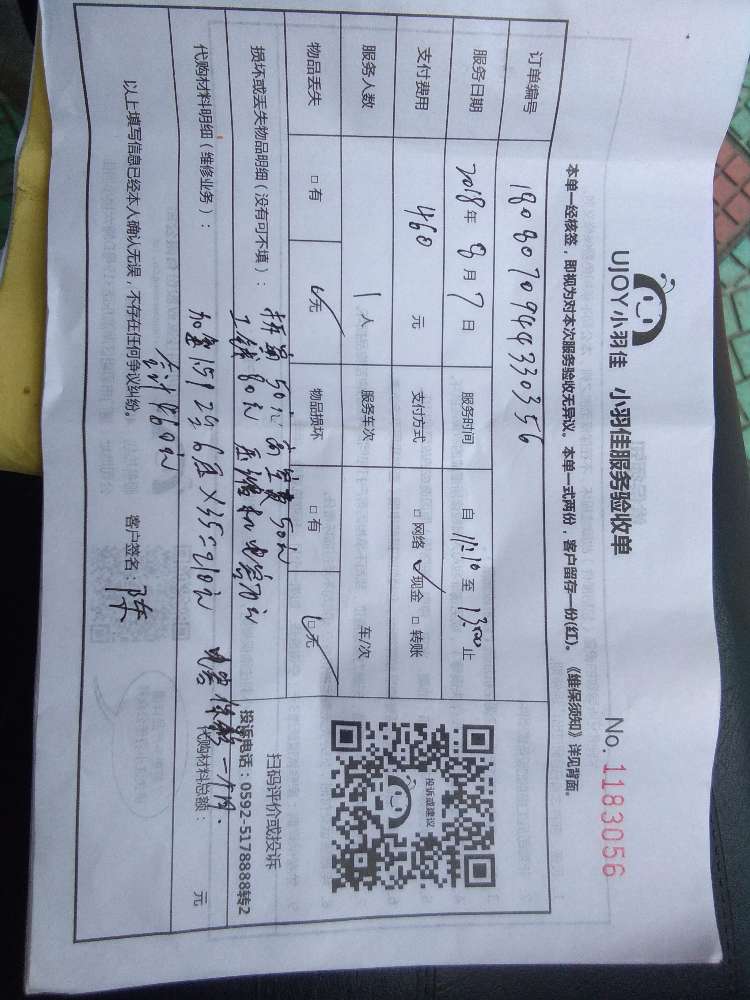 UJOY小羽佳 小羽佳服务验收单
No. 1183056
本单一经核签，即视为对本次服务验收无异议。本单一式两份，客户留存一份(红)。《维保须知》详见背面。
订单编号 180807094433035 6
服务日期 2018年 8 月 7 日 服务时间 自 11:10 至 13:00 止
支付费用 460 元 支付方式 □网络 ✓现金 □转账
服务人数 1 人 服务车次 车/次
物品丢失 □有 ☑无 物品损坏 □有 ☑无
投诉或建议
扫码评价或投诉
投诉电话：0592-5178888转2
损坏或丢失物品明细（没有可不填）： 拆 50元 高空费50元
工钱80元 压缩机电容70元
代购材料明细（维修业务）： 加 6压×35=210元 电容保 一个月.
代购材料总额： 元
合计460元
以上填写信息已经本人确认无误，不存在任何争议纠纷。 客户签名：陈